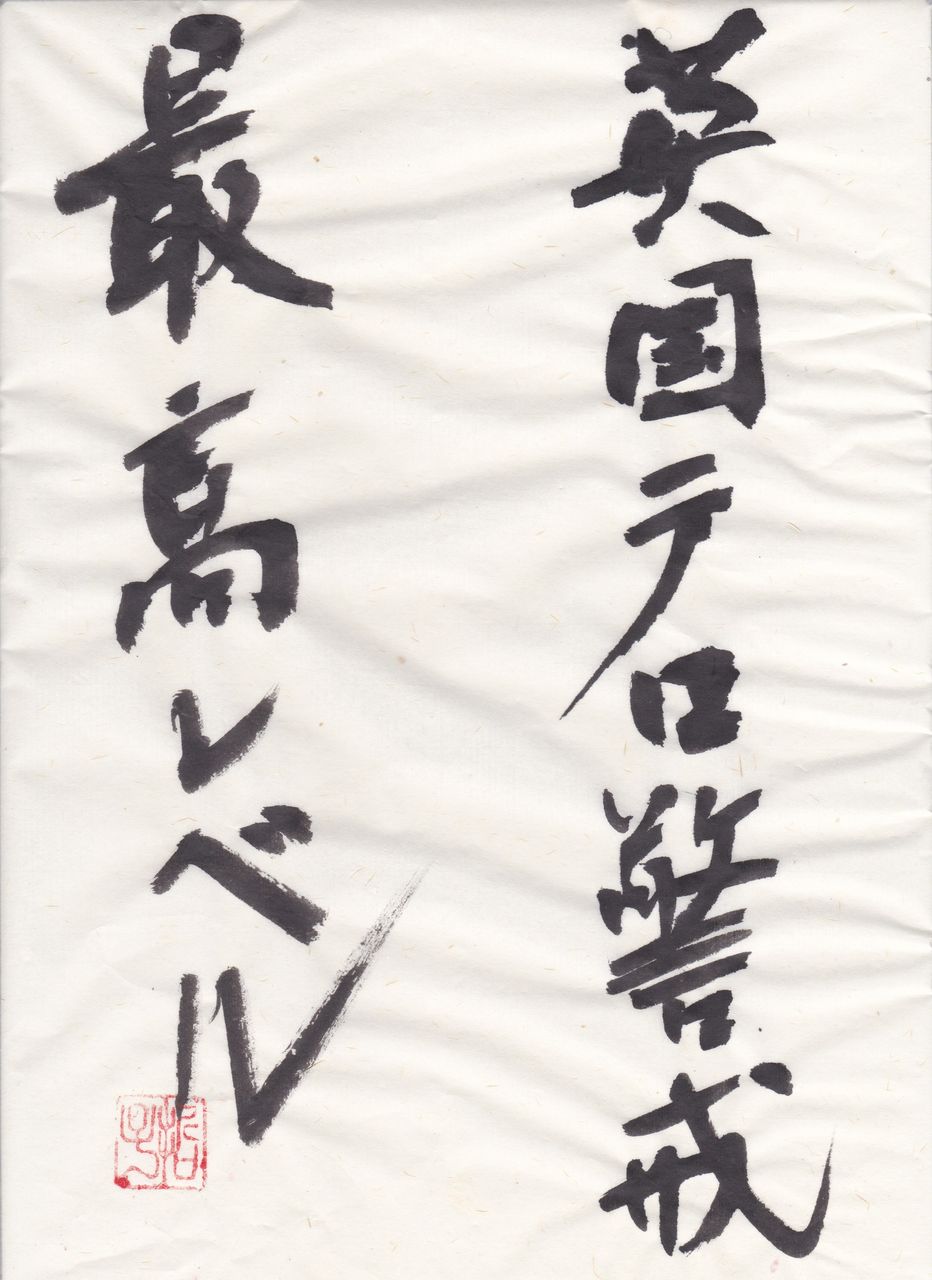 英国テロ警戒
最高レベル